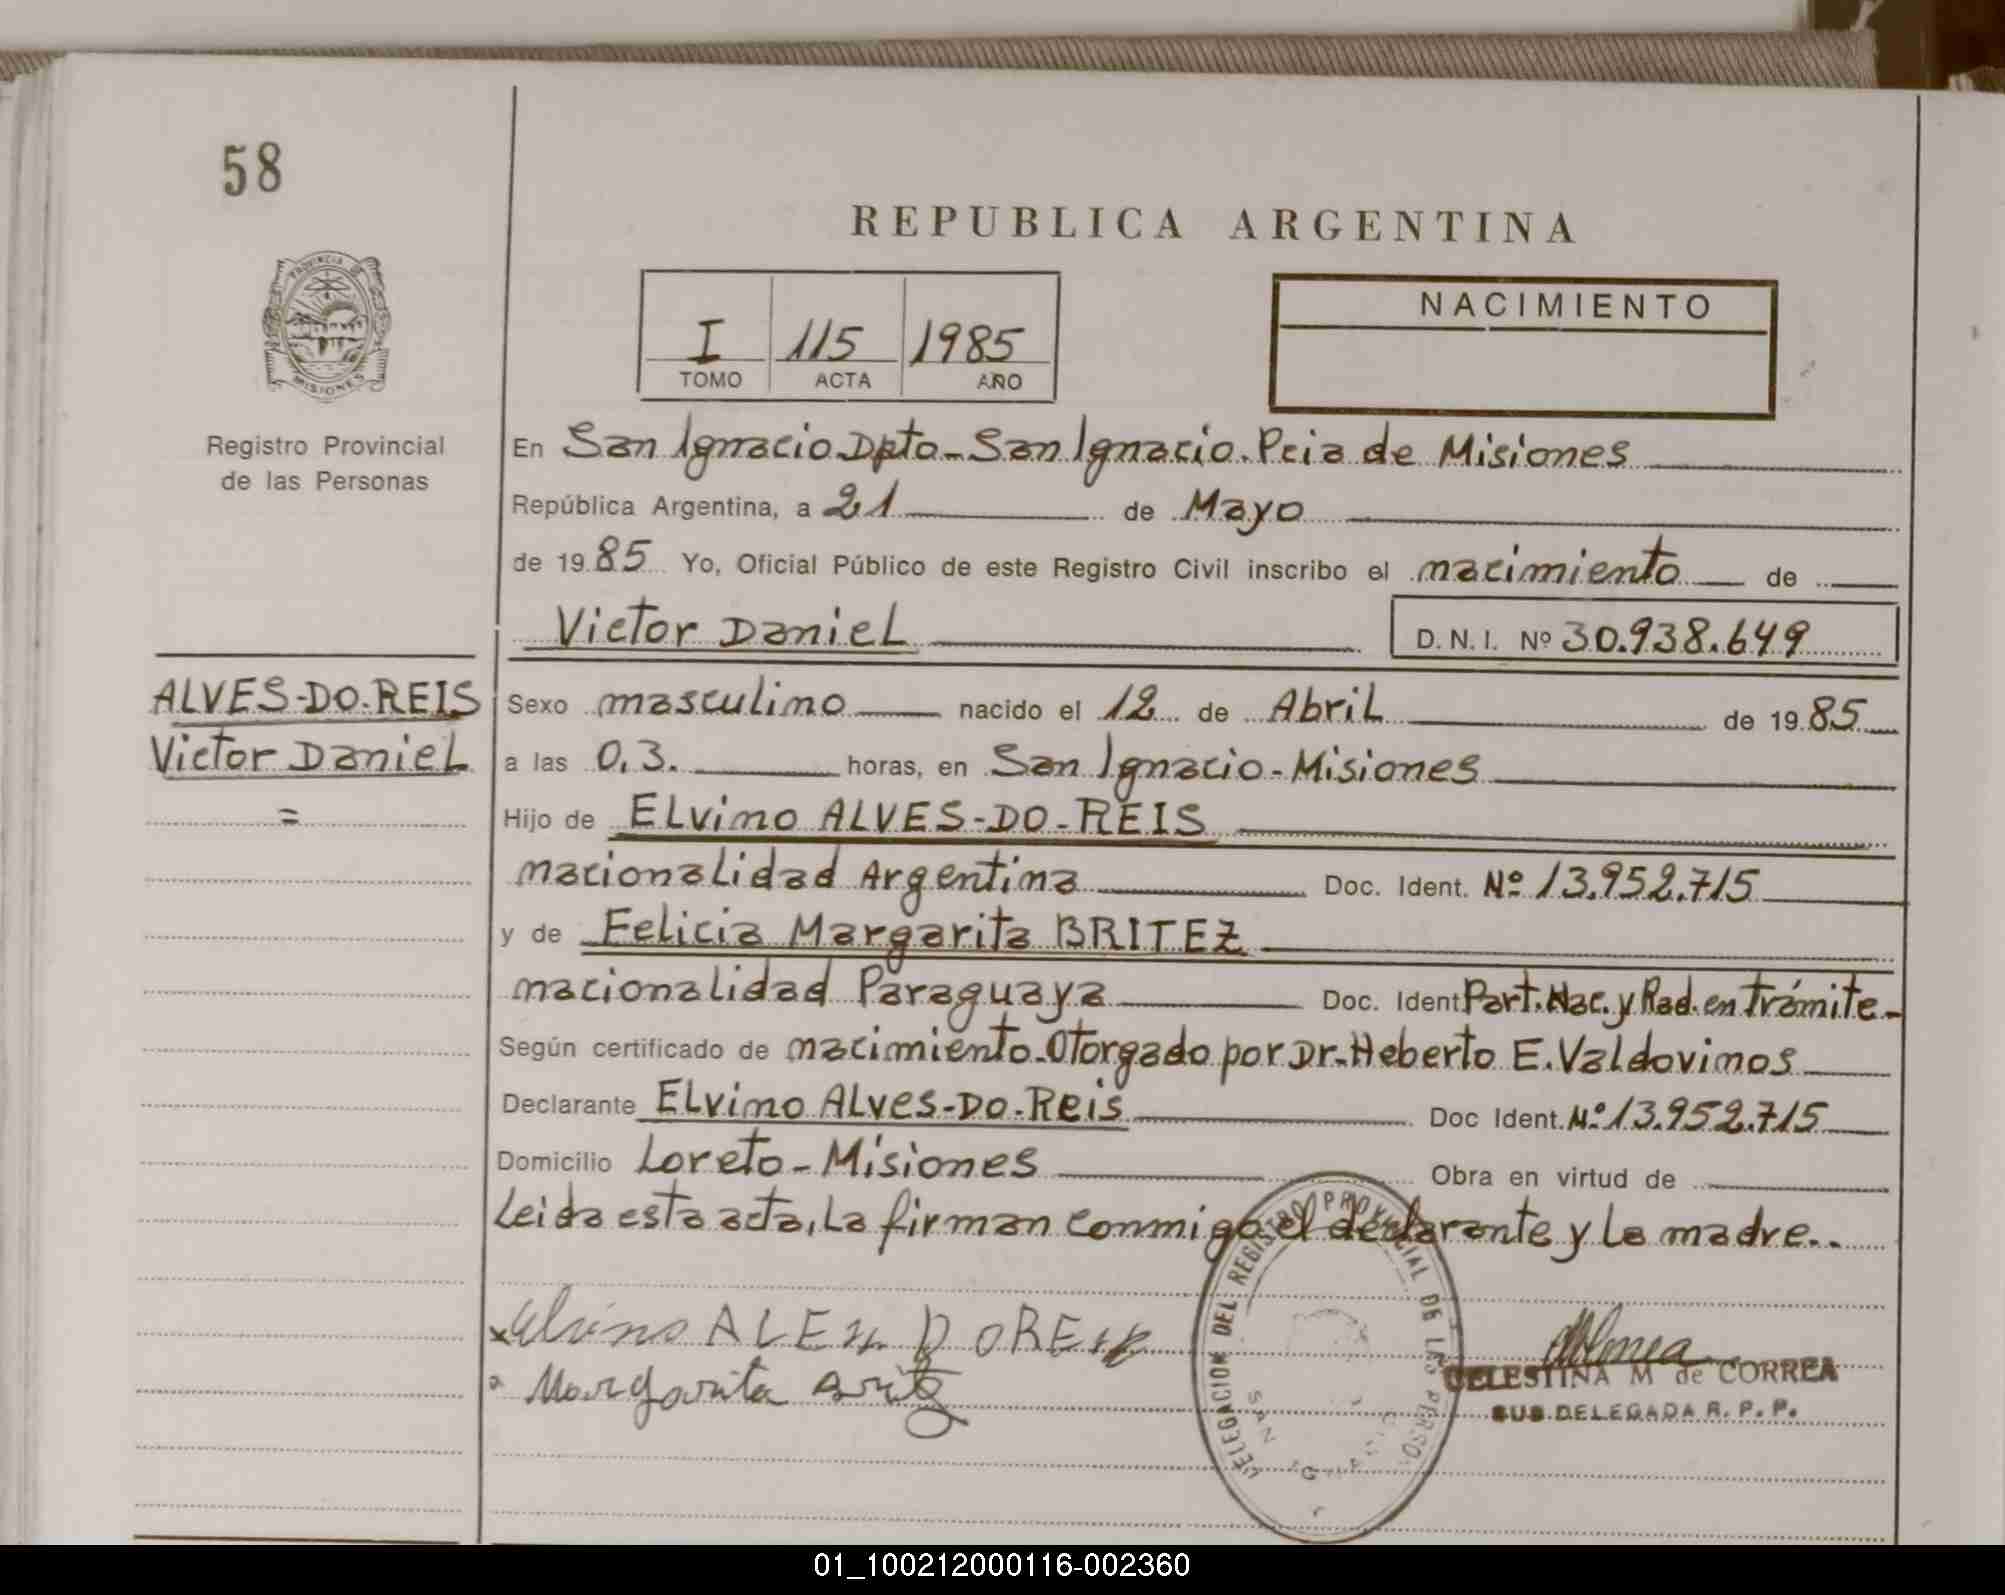 58
REPUBLICA ARGENTINA
PROVINCIA DE MISIONES
Registro Provincial
de las Personas
I 115 1985
TOMO ACTA AÑO
NACIMIENTO
En San Ignacio Dpto- San Ignacio. Pcia de Misiones
República Argentina, a 21 de Mayo
de 1985 Yo, Oficial Público de este Registro Civil inscribo el nacimiento de
Victor Daniel D.N.I. Nº 30.938.649
ALVES-DO-REIS
Victor Daniel
=
Sexo masculino nacido el 12 de Abril de 1985
a las 0.3. horas, en San Ignacio-Misiones
Hijo de Elvino ALVES-DO-REIS
nacionalidad Argentina Doc. Ident. Nº 13.952.715
y de Felicia Margarita BRITEZ
nacionalidad Paraguaya Doc. Ident Part. Nac. y Rad. en trámite-
Según certificado de nacimiento-Otorgado por Dr-Heberto E. Valdovinos
Declarante Elvino Alves-Do-Reis Doc Ident. Nº 13.952.715
Domicilio Loreto-Misiones Obra en virtud de
Leida esta acta, la firman conmigo el declarante y la madre..
x Elvino ALEZ DOREIS
Margarita Britez
DELEGACION DEL REGISTRO PROVINCIAL DE LAS PERSO.
SAN IGNACIO
CELESTINA M de CORREA
SUB DELEGADA R. P. P.
01_100212000116-002360